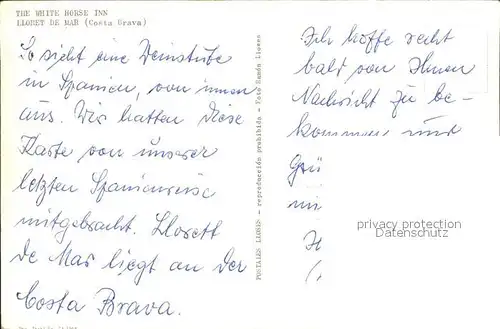 THE WHITE HORSE INN
LLORET DE MAR (Costa Brava)
So sieht eine Weinstube
in Spanien, von innen
aus. Wir hatten diese
Karte von unserer
letzten Spanienreise
mitgebracht. Llorett
de Mar liegt an der
Costa Brava.
POSTALES LIGSES - reproducción prohibida - Foto Ramón Ligses
Ich hoffe recht
bald von Ihnen
Nachricht zu be-
kommen und
Grü
mi
privacy protection
Datenschutz